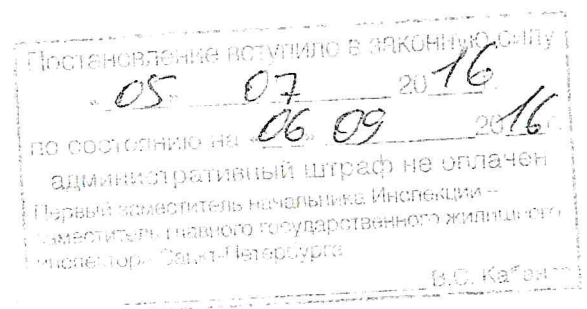 Постановление вступило в законную силу
«05» 07 2016 г.
по состоянию на «06» 09 2016 г.
административный штраф не оплачен
Первый заместитель начальника Инспекции –
заместитель главного государственного жилищного
инспектора Санкт-Петербурга
В.С.